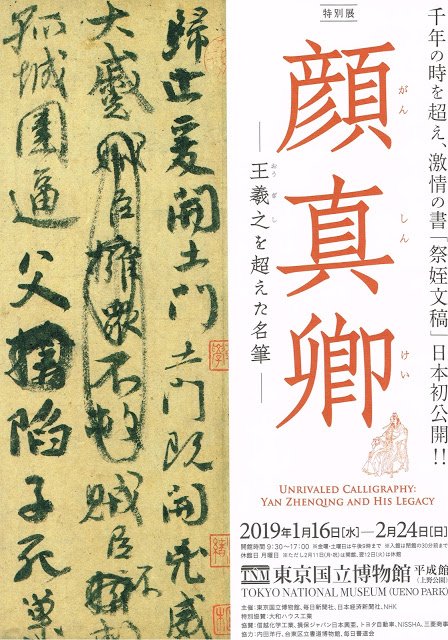 特別展
千年の時を超え、激情の書「祭姪文稿」日本初公開!!
顔真卿
がん しん けい
王羲之を超えた名筆
おう ぎ し
UNRIVALED CALLIGRAPHY:
YAN ZHENQING AND HIS LEGACY
2019年1月16日[水]―2月24日[日]
開館時間 9:30〜17:00 ※金曜・土曜日は午後9時まで ※入館は閉館の30分前まで
休館日 月曜日 ※ただし2月11日(月・祝)は開館、翌12日(火)は休館
TNM 東京国立博物館 平成館(上野公園)
TOKYO NATIONAL MUSEUM (UENO PARK)
主催:東京国立博物館、毎日新聞社、日本経済新聞社、NHK
特別協賛:大和ハウス工業
協賛:信越化学工業、損保ジャパン日本興亜、トヨタ自動車、NISSHA、三菱商事
協力:内田洋行、台東区立書道博物館、全日本書道連盟、毎日書道会
歸止爰開土門土門既開凶威
大蹙賊臣擁衆不救賊臣不
孤城圍逼父陷子死巢